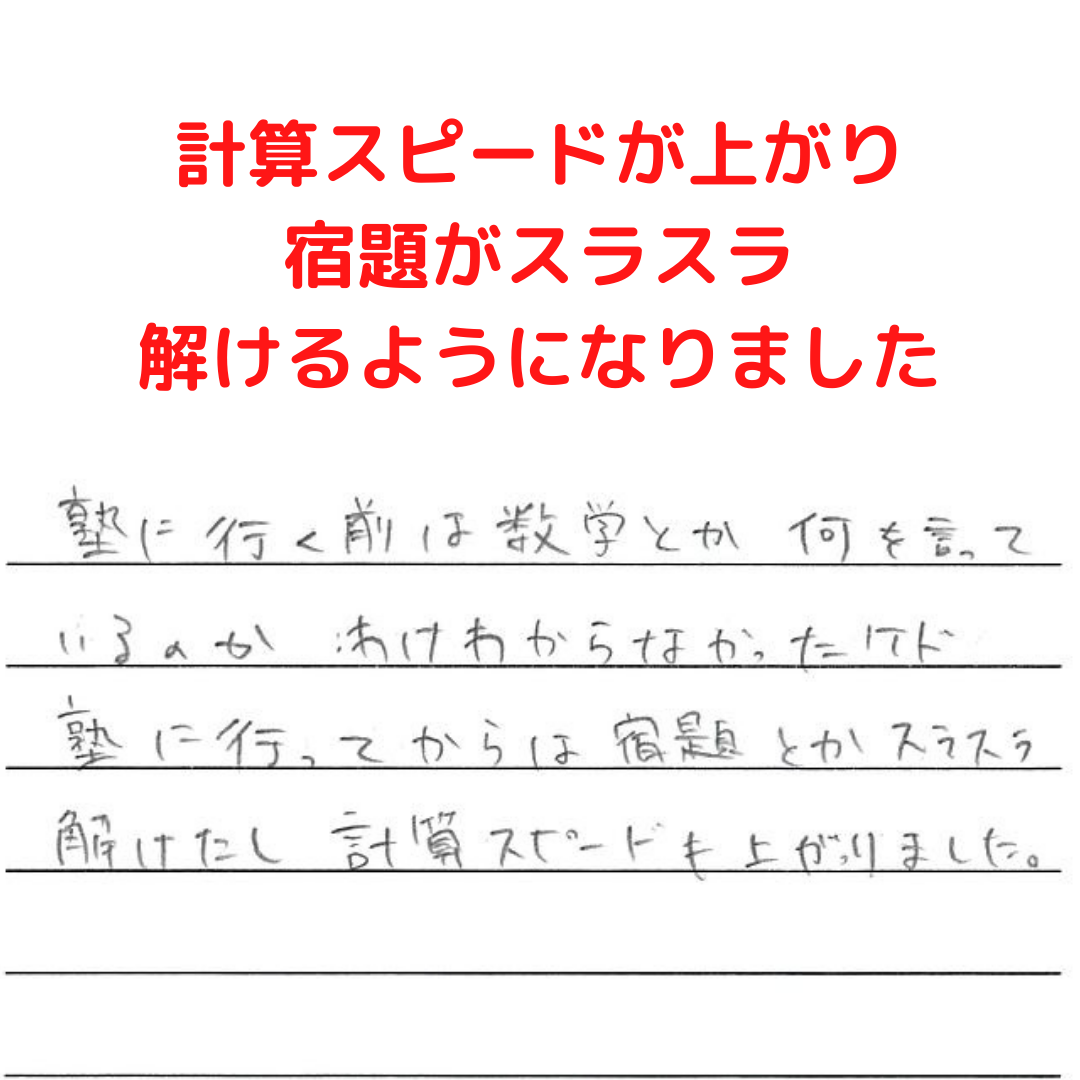 計算スピードが上がり
宿題がスラスラ
解けるようになりました
塾に行く前は数学とか 何を言って
いるのか わけわからなかったケド
塾に行ってからは宿題とかスラスラ
解けたし 計算スピードも上がりました。